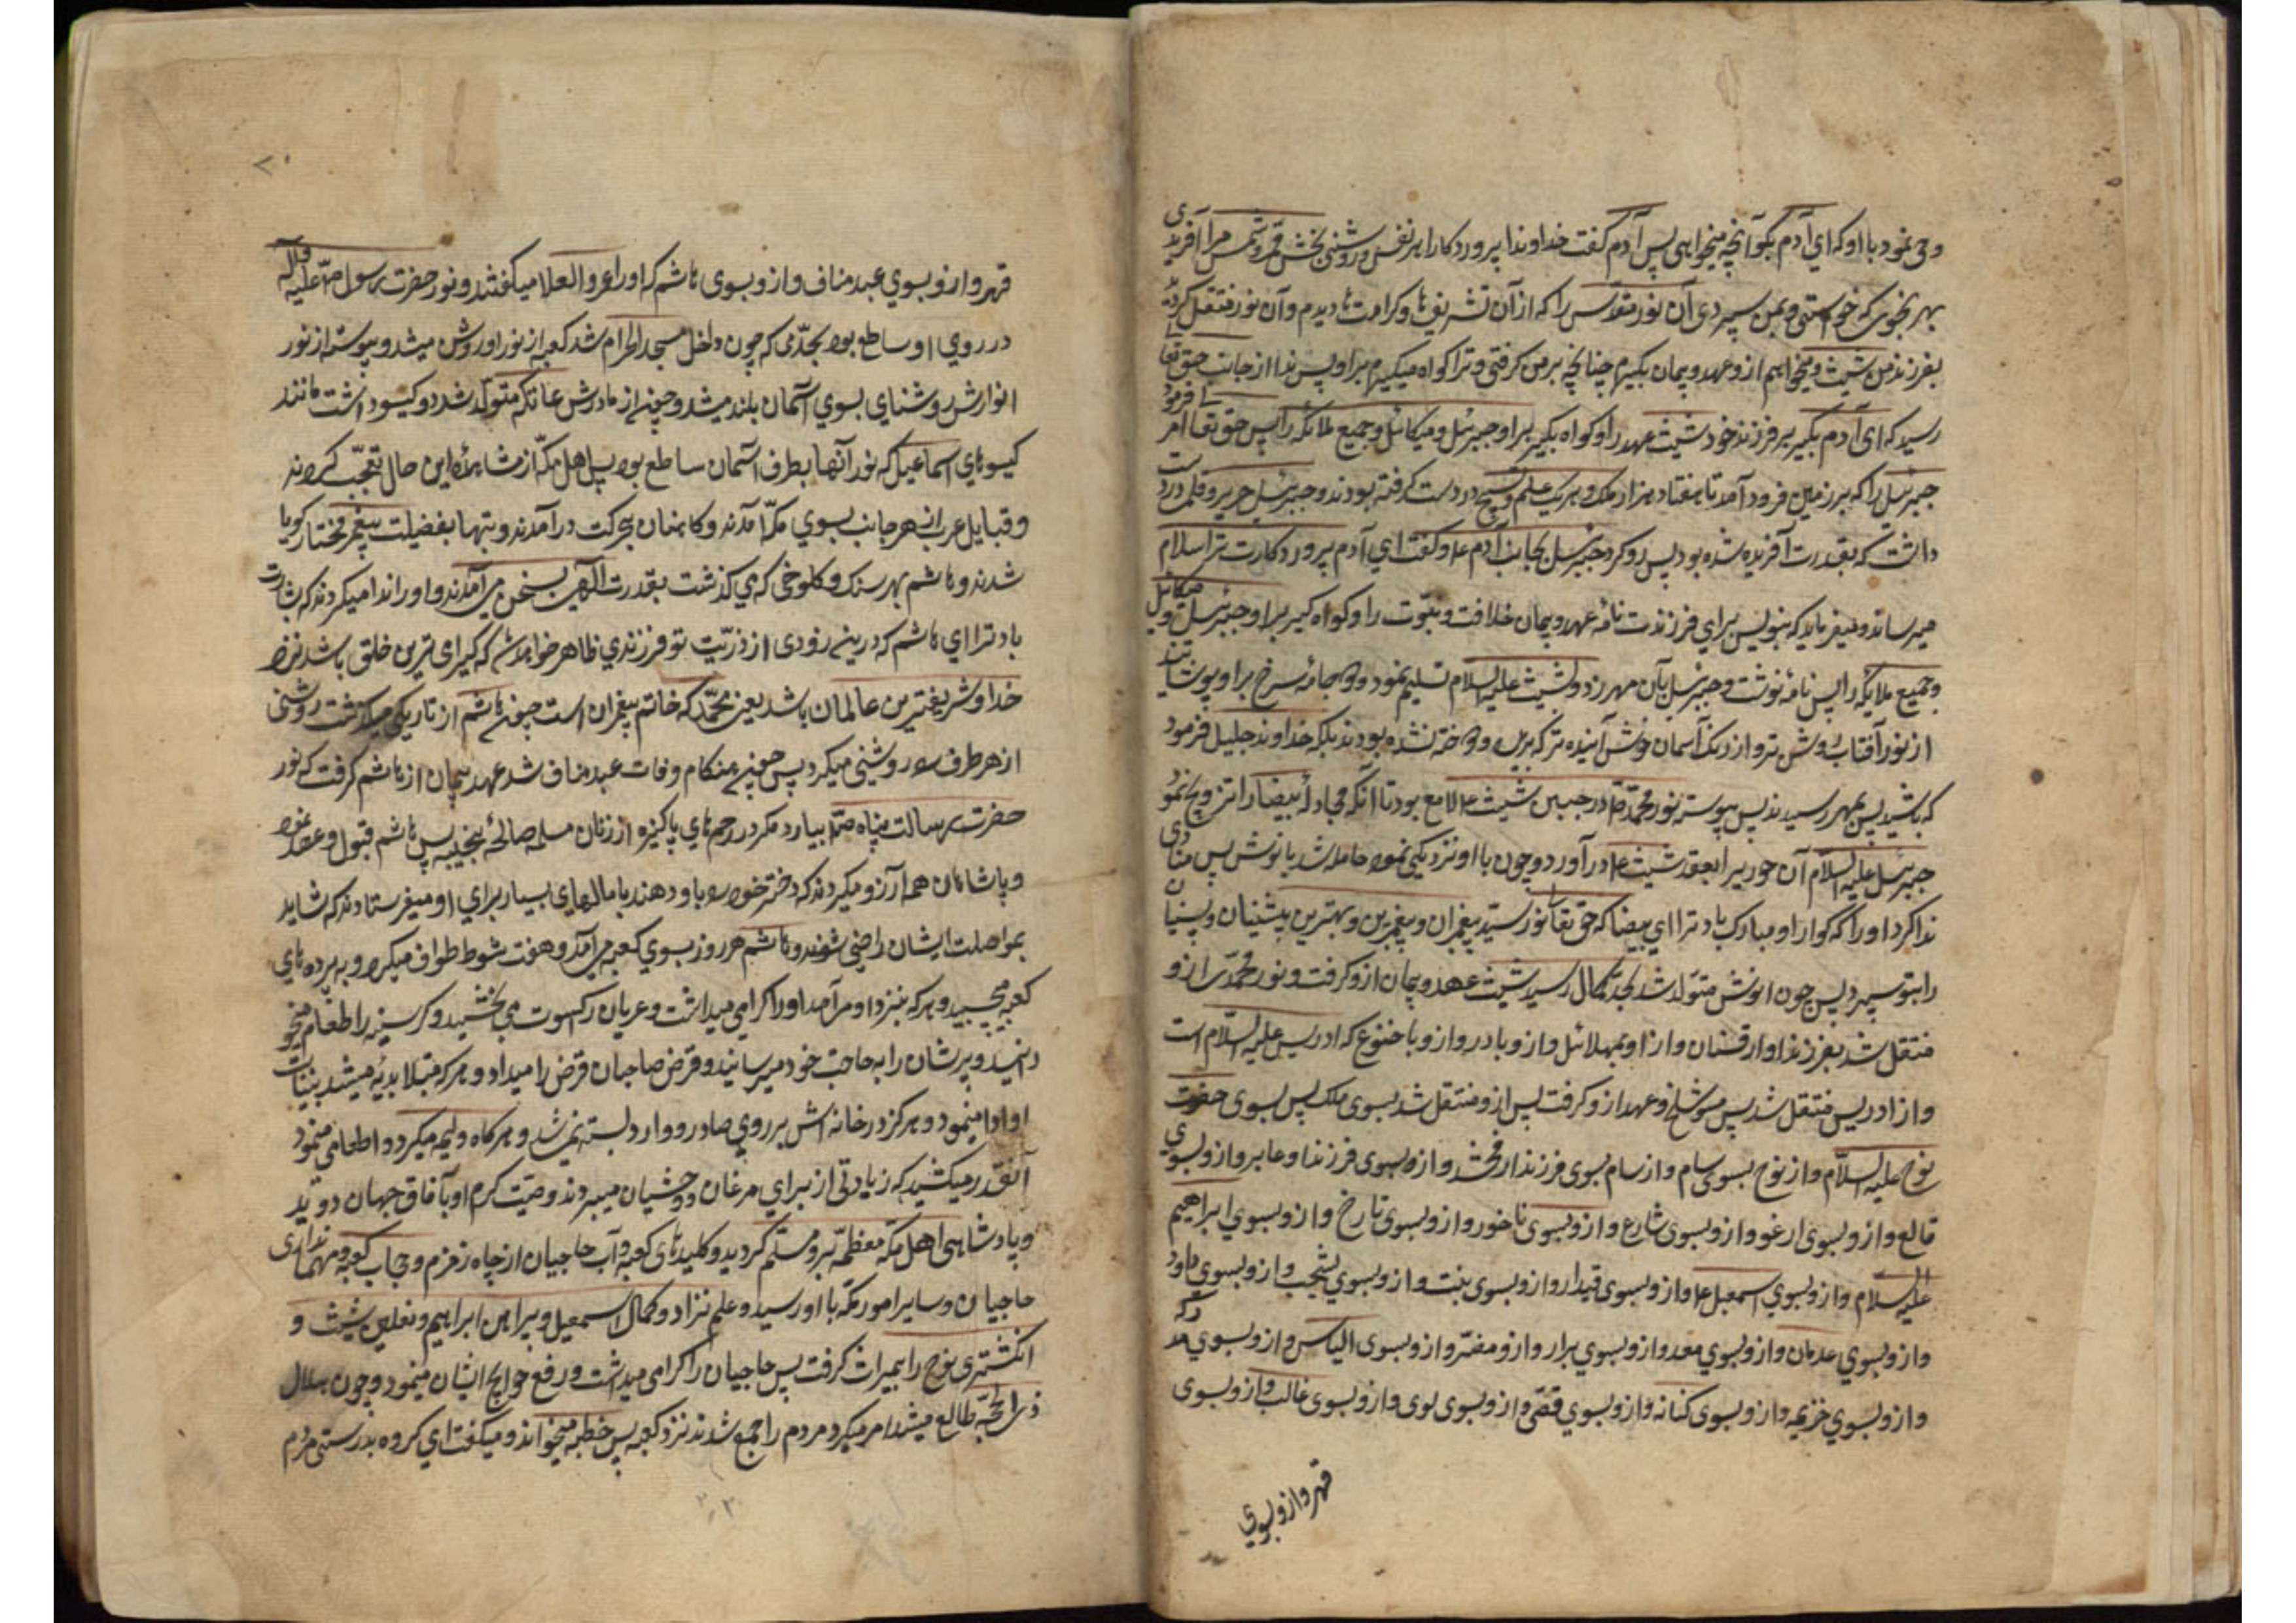 وحی نمود با او که ای آدم بگو آنچه میخواهی پس آدم گفت خداوندا پروردکارا هر نفس و روشنی بخش قمر و شمس مرا آفریدی
بهر نحوی که خواستی و بمن سپردی آن نور مقدس را که از آن تشریف ها و کرامت ها دیدم و آن نور منتقل کردد
بفرزند من شیث و میخواهم ازو عهد و پیمان بگیرم چنانچه بر من کرفتی و ترا کواه میگیرم بر او پس ندا از جانب حق تعا
رسید که ای آدم بگیر بر فرزند خود شیث عهد را و کواه بگیر بر او جبرئیل و میکائیل و جمیع ملائکه را پس حق تعالی امر فرمود
جبرئیل را که بر زمین فرود آمد تا هفتاد هزار ملک و هر یک علم تسبیح در دست کرفته بودند و جبرئیل حریر و قلم در دست
داشت که بقدرت آفریده شده بود پس رو کرد جبرئیل بجانب آدم ع و گفت ای آدم پروردکارت ترا سلام
میرساند و میفرماید که بنویس برای فرزندت نامۀ عهد و پیمان خلافت و نبوت را و کواه کیر بر او جبرئیل و میکائیل
و جمیع ملایکه را پس نامه نوشت و جبرئیل بآن مهر زد و بشیث علیه السلام تسلیم نمود و دو جامۀ سرخ بر او پوشانیدند
از نور آفتاب روشن تر و از رنک آسمان خوش آینده تر که بریده و دوخته نشده بودند بلکه خداوند جلیل فرمود
که باشید پس بهم رسیدند پس پیوسته نور محمد ص در جبین شیث ع لامع بود تا آنکه مجادلۀ بیضا را تزویج نمود
جبرئیل علیه السلام آن حوریرا بعقد شیث ع درآورد و چون با او نزدیکی نمود حامله شد بانوش پس منادی
ندا کرد او را که کوارا و مبارک باد ترا ای بیضا که حق تعالی نور سید پیغمبران و بهترین پیشنیان و پسینیان
را بتو سپرد پس چون انوش متولد شد بحد کمال رسید شیث عهد و پیمان ازو کرفت و نور محمدی ازو
منتقل شد بفرزند او ارقنان و از او بمهلائل و ازو بادر و ازو با خنوع که ادریس علیه السلام است
و از ادریس منتقل شد پس متوشلخ و عهد ازو کرفت پس ازو منتقل شد بسوی ملک پس بسوی حضرت
نوح علیه السلام و از نوح بسوی سام و از سام بسوی فرزند ارفخشد و ازو بسوی فرزند او عابر و ازو بسوی
قالع و ازو بسوی ارغو و ازو بسوی شارع و ازو بسوی ناخور و ازو بسوی تارخ و ازو بسوی ابراهیم
علیه السلام و ازو بسوی اسمعیل ع و ازو بسوی قیدار و ازو بسوی بنت و ازو بسوی یشجب و ازو بسوی داود
و ازو بسوی عدنان و ازو بسوی معد و ازو بسوی برار و ازو مضر و ازو بسوی الیاس و ازو بسوی مدرکه
و ازو بسوی خزیمه و ازو بسوی کنانه و ازو بسوی قصّی و ازو بسوی لوی و ازو بسوی غالب و ازو بسوی
قهر و ازو بسوی
قهر و ازو بسوی عبد مناف و ازو بسوی هاشم که او را عمرو العلا میکفتند و نور حضرت رسول ص علیه و آله
در روی او ساطع بود بحدّی که چون داخل مسجد الحرام شد کعبه از نور او روشن میشد و پیوسته از نور
انوارش روشنای بسوی آسمان بلند میشد و چون از مادرش عاتکه متولد شد دو کیسو داشت مانند
کیسوهای اسماعیل که نور آنها بطرف آسمان ساطع بود پس اهل مکه از مشاهدۀ این حال تعجب کردند
و قبایل عرب از هر جانب بسوی مکه آمدند و کاهنان بحرکت درآمدند و بتها بفضیلت پیغمبر مختار کویا
شدند و هاشم بهر سنک و کلوخی که می کذشت بقدرت الهی بسخن می آمدند و او را ندا میکردند که بشارت
باد ترا ای هاشم که درین زودی از ذریّت تو فرزندی ظاهر خواهد شد که کیرامی ترین خلق باشد نزد
خدا و شریفترین عالمان باشد یعنی محمد که خاتم پیغمبران است چون هاشم از تاریکی میکذشت روشنی
از هر طرف او روشنی میکرد پس چون هنکام وفات عبد مناف شد عهد و پیمان از هاشم کرفت که نور
حضرت رسالت پناه ص را نسپارد مکر در رحم های پاکیزه از زنان مسلمه صالحۀ نجیبه پس هاشم قبول عهد نمود
و پاشاهان همه آرزو میکردند که دختر خود را باو دهند با مالهای بسیار برای او میفرستادند که شاید
بمواصلت ایشان راضی شوند و هاشم هر روز بسوی کعبه می آمد و هفت شوط طواف میکرد و به پرده های
کعبه میچسپید و هر که بنزد او می آمد او را اکرامی میداشت و عریان را کسوت می بخشید و کرسنه را طعام میخو
رانید و پرشان را به حاجت خود میرسانید و قرض صاحبان قرض را میداد و هر که مبتلا بدیۀ میشد بنیابت
او ادا مینمود و هرکز در خانه اش بر روی صادر و وارد بسته نمی شد و هرکاه ولیمه میکرد و اطعامی مینمود
آنقدر میکشید که زیادتی از برای مرغان و وحشیان میبردند وصیت کرم او بآفاق جهان دوید
و پادشاهی اهل مکه معظمه برو مسلم کردید و کلیدهای کعبه و آب حاجیان از چاه زمزم و حجاب کعبه و مهمانداری
حاجیان و سایر امور مکه با او رسید و علم نزار و کمان اسمعیل و پیراهن ابراهیم و نعلین شیث و
انکشتری نوح را بمیراث کرفت پس حاجیان را کرامی میداشت و رفع حوایج ایشان مینمود و چون هلال
ذی الحجه طالع میشد امر میکرد مردم را جمع شدند نزد کعبه پس خطبه میخواند و میکفت ای کروه بدرستی مردم